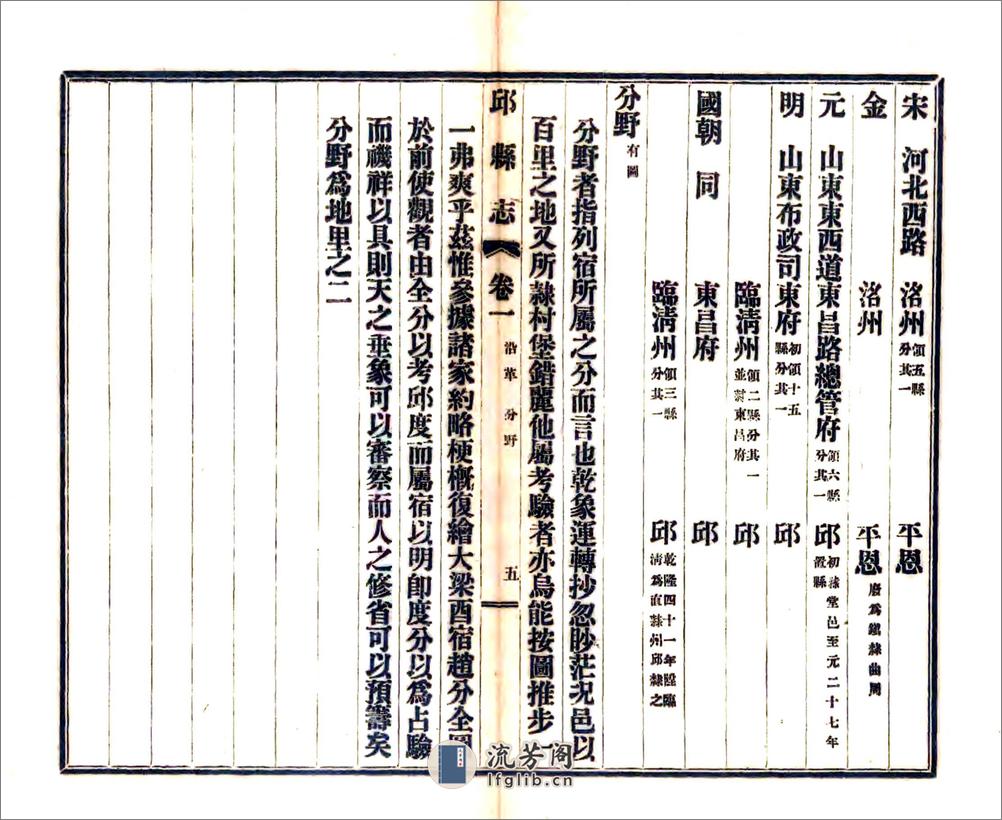 宋 河北西路 洺州 領五縣分其一 平恩
金 洺州 平恩 廢爲鎮隸曲周
元 山東東西道東昌路總管府 領六縣分其一 邱 初隸堂邑至元二十七年置縣
明 山東布政司東府 初領十五縣分其一 邱
臨清州 領二縣分其一並隸東昌府 邱
國朝 同 東昌府 邱
臨清州 領三縣分其一 邱 乾隆四十一年陞臨清爲直隸州邱隸之
分野 有圖
分野者指列宿所屬之分而言也乾象運轉抄忽眇茫况邑以
百里之地又所隸村堡錯麗他屬考驗者亦烏能按圖推步
邱縣志 卷一 沿革 分野 五
一弗爽乎茲惟參據諸家約略梗概復繪大梁酉宿趙分全圖
於前使觀者由全分以考邱度而屬宿以明卽度分以爲占驗
而禨祥以具則天之垂象可以審察而人之修省可以預籌矣
分野爲地里之二
流芳阁
lfglib.cn